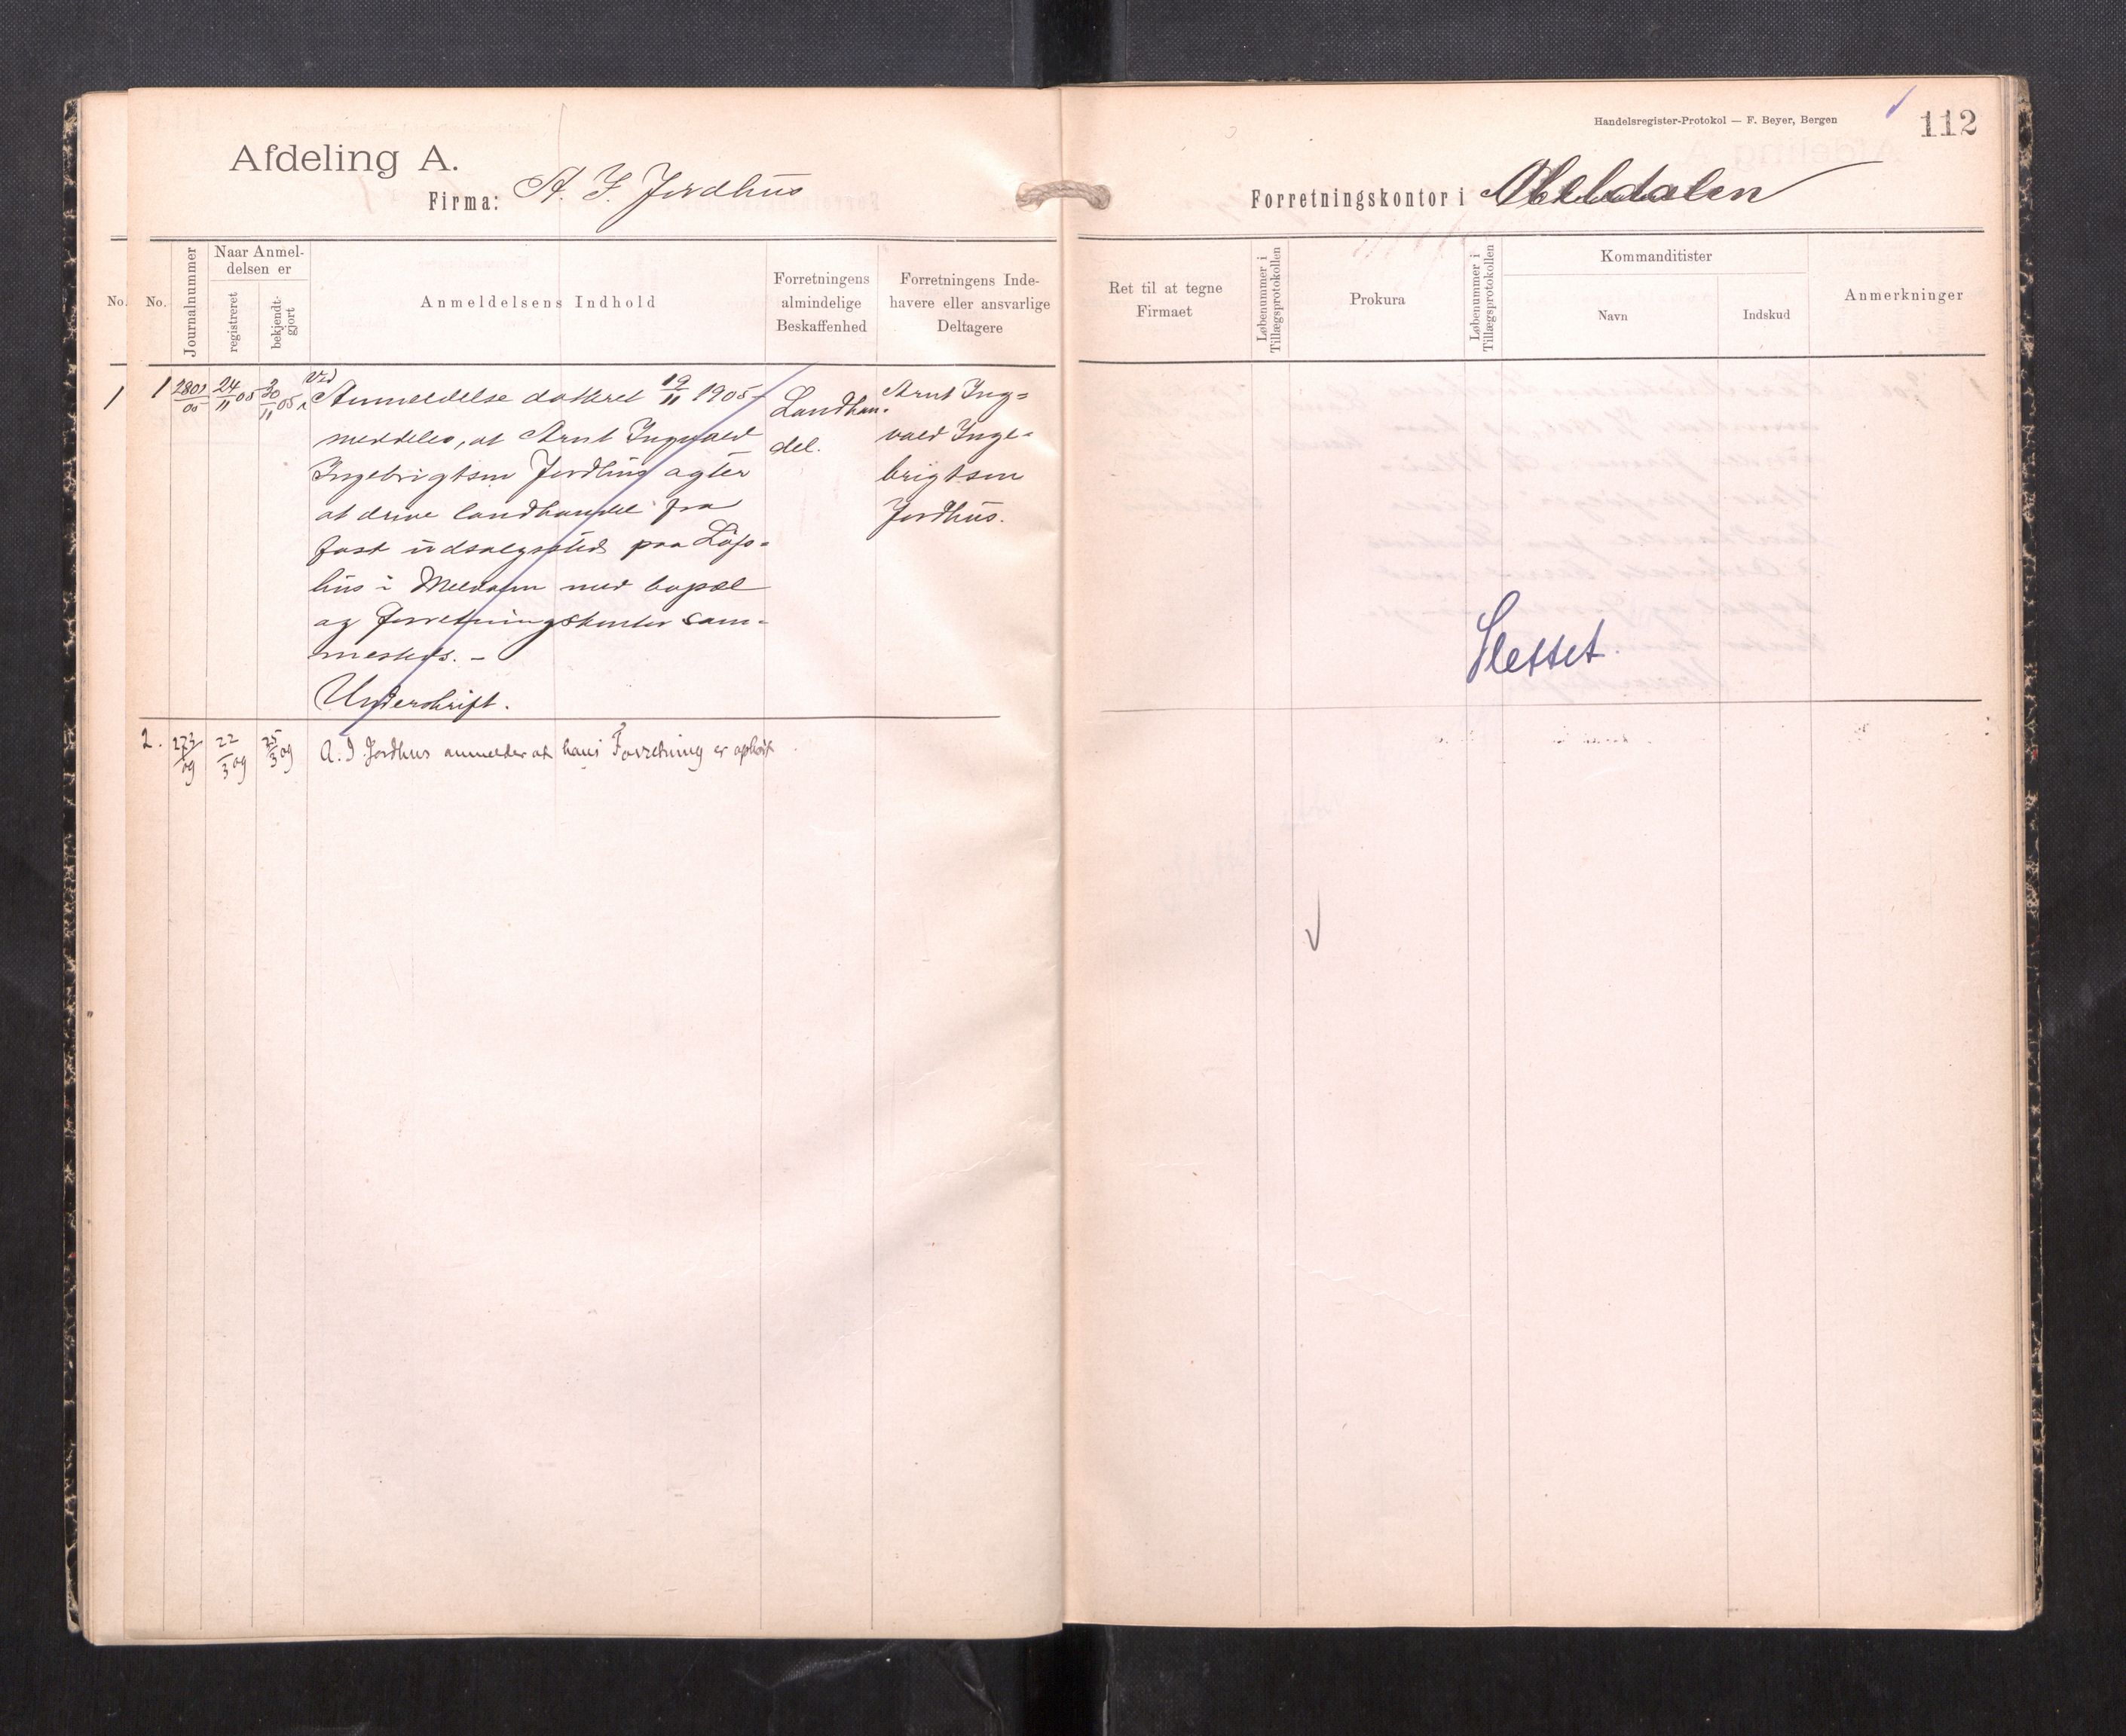 Handelsregister-Protokol — F. Beyer, Bergen
112
Afdeling A.
Firma: A. I. Jordhus
Forretningskontor i Meldalen
No.
No.
Journalnummer
Naar Anmel-
delsen er
registreret
bekjendt-
gjort
Anmeldelsens Indhold
Forretningens
almindelige
Beskaffenhed
Forretningens Inde-
havere eller ansvarlige
Deltagere
Ret til at tegne
Firmaet
Løbenummer i
Tillægsprotokollen
Prokura
Løbenummer i
Tillægsprotokollen
Kommanditister
Navn
Indskud
Anmerkninger
1
1
24/11 05
30/11 05
Ved
Anmeldelse dateret 19/11 1905
meddeles, at Arnt Ingvald
Ingebrigtsen Jordhus agter
at drive landhandel fra
fast udsalgssted paa Løfs-
hus i Meldalen med bopæl
og forretningskontor sam-
mesteds. –
Underskrift.
Landhan-
del.
Arnt Ing-
vald Inge-
brigtsen
Jordhus.
Slettet.
2.
273/09
22/3 09
25/3 09
A. I Jordhus anmelder at hans Forretning er ophørt